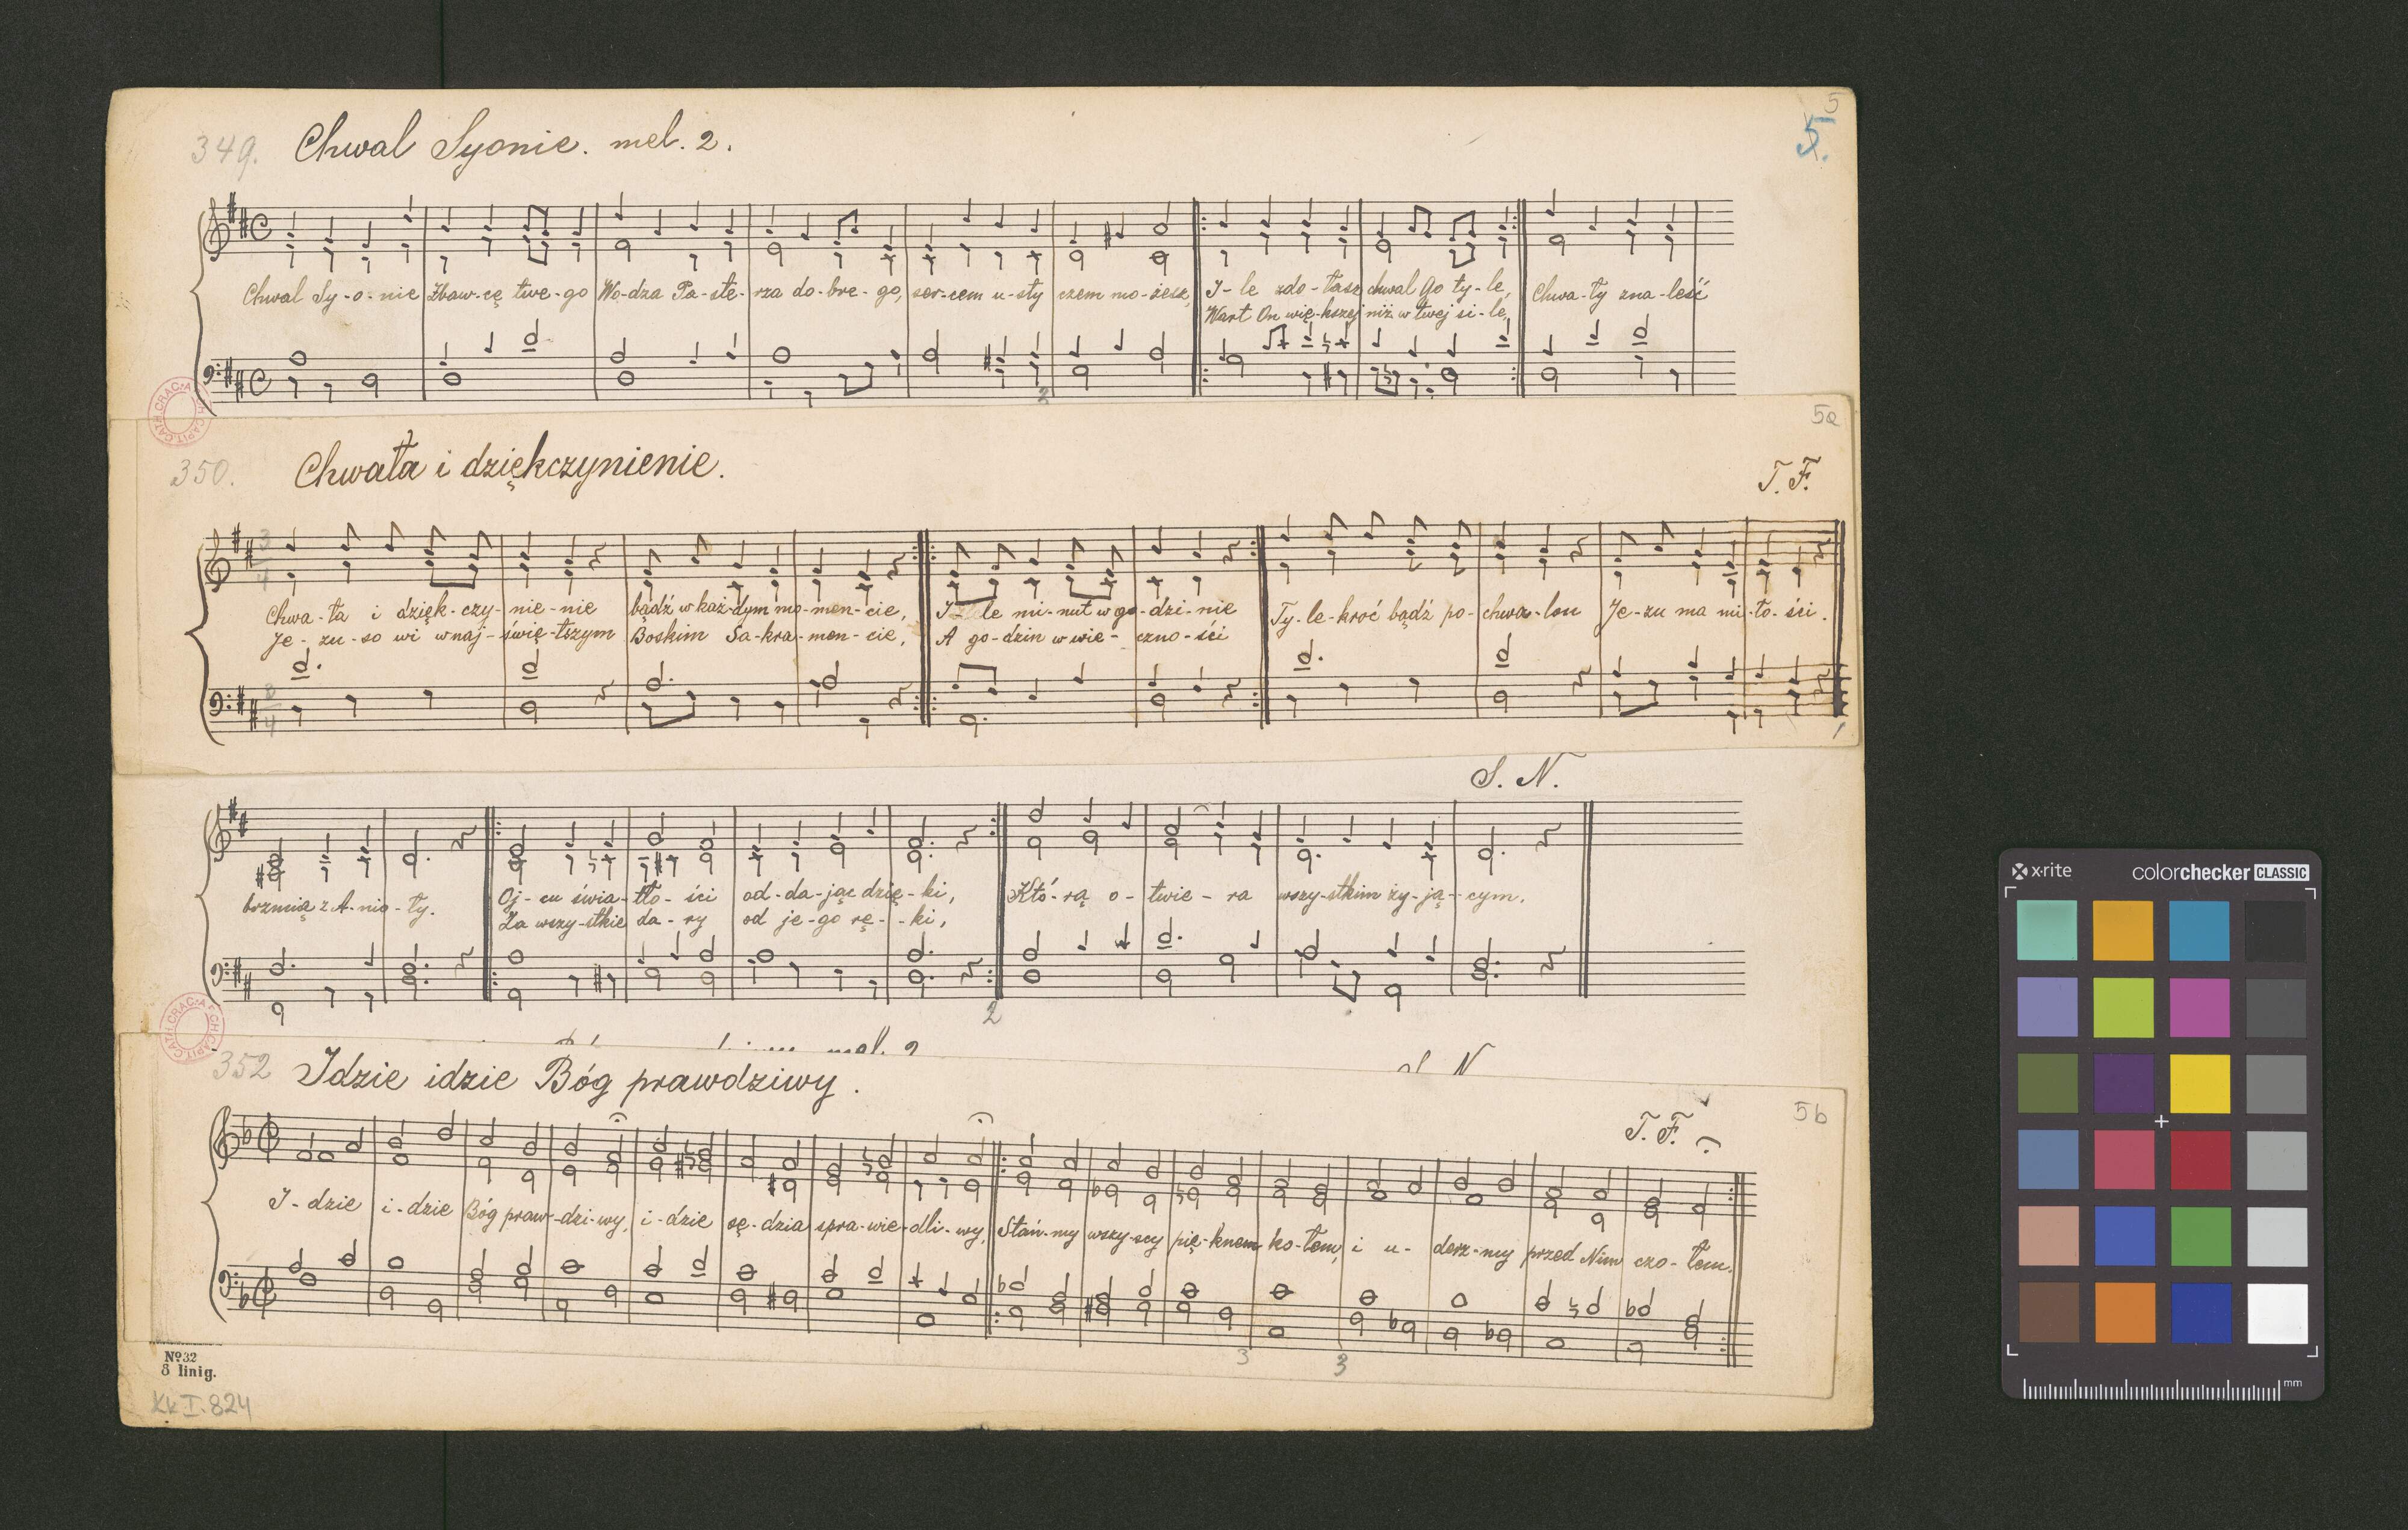 5
5.
349. Chwal Syonie. mel. 2.
Chwal Sy-o-nie Zbaw-cę twe-go Wo-dza Pa-ste-rza do-bre-go, ser-cem u-sty czem mo-żesz, I-le zdo-łasz chwal Go ty-le, Chwa-ły zna-leść
Wart On wię-kszej niż w twej si-le,
2
5a
350. Chwała i dziękczynienie.
T. F.
3
4
Chwa-ła i dzięk-czy-nie-nie bądź w każ-dym mo-men-cie, I-le mi-nut w go-dzi-nie Ty-le-kroć bądź po-chwa-lon Je-zu ma mi-ło-ści.
Je-zu-so wi w naj-świę-tszym Boskim Sa-kra-men-cie, A go-dzin w wie-czno-ści
3
4
S. N.
brzmią z A-nio-ły. Oj-cu świa-tło-ści od-da-jąc dzię-ki, Któ-rą o-twie-ra wszy-stkim ży-ją-cym.
Za wszy-stkie da-ry od je-go rę-ki,
2
mel. 2
S. N.
352 Idzie idzie Bóg prawdziwy.
5b
T. F.
I-dzie i-dzie Bóg praw-dzi-wy, i-dzie sę-dzia spra-wie-dli-wy, Stań-my wszy-scy pię-knem ko-łem, i u-derz-my przed Nim czo-łem.
3 3
No. 32
8 linig.
KkI.824
x-rite colorchecker CLASSIC
mm